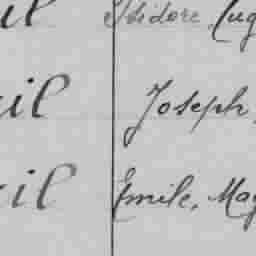 Isidore, Eug
il Joseph,
il Emile, Mag